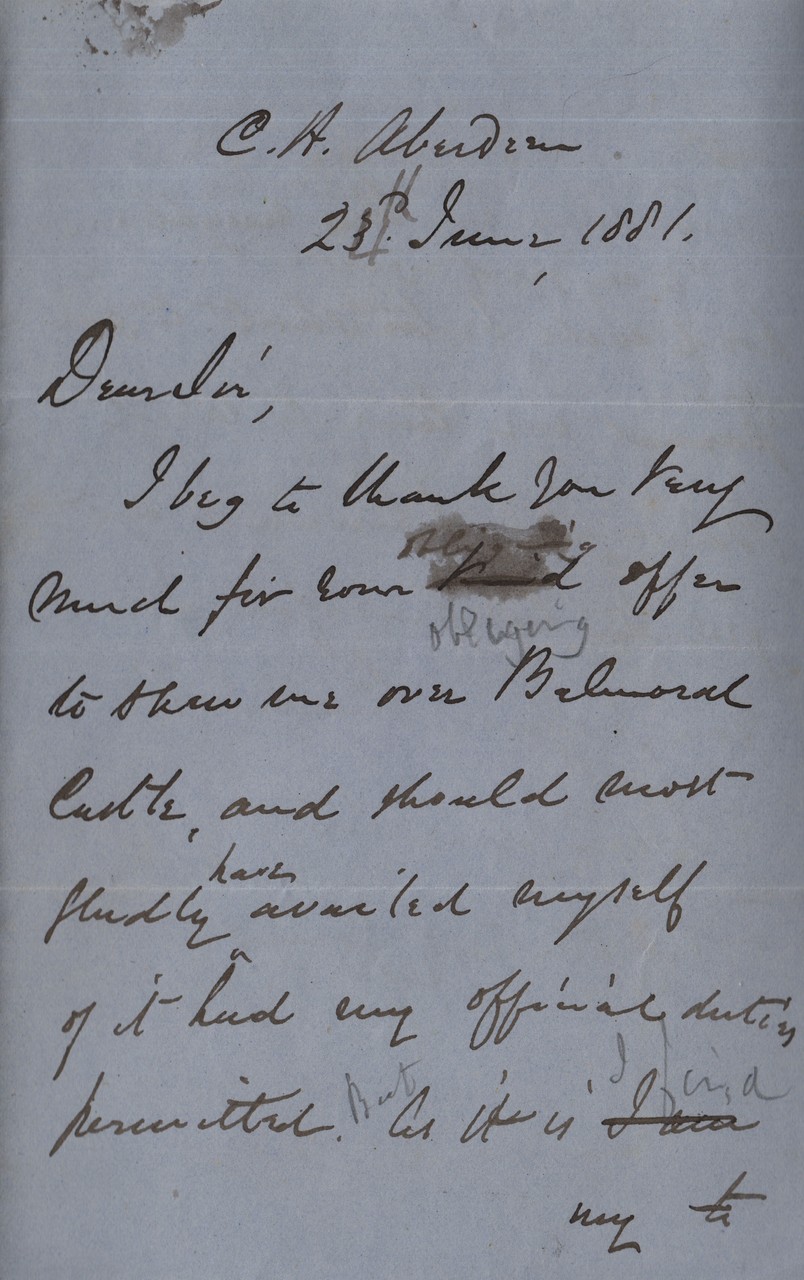 C. H. Aberdeen
23d. June, 1881.
Dear Sir,
I beg to thank you very
much for your obliging kind offer
obliging
to shew me over Balmoral
Castle, and should most
have
gladly availed myself
of it had my official duties
I find
permitted. But As it is I am
my to